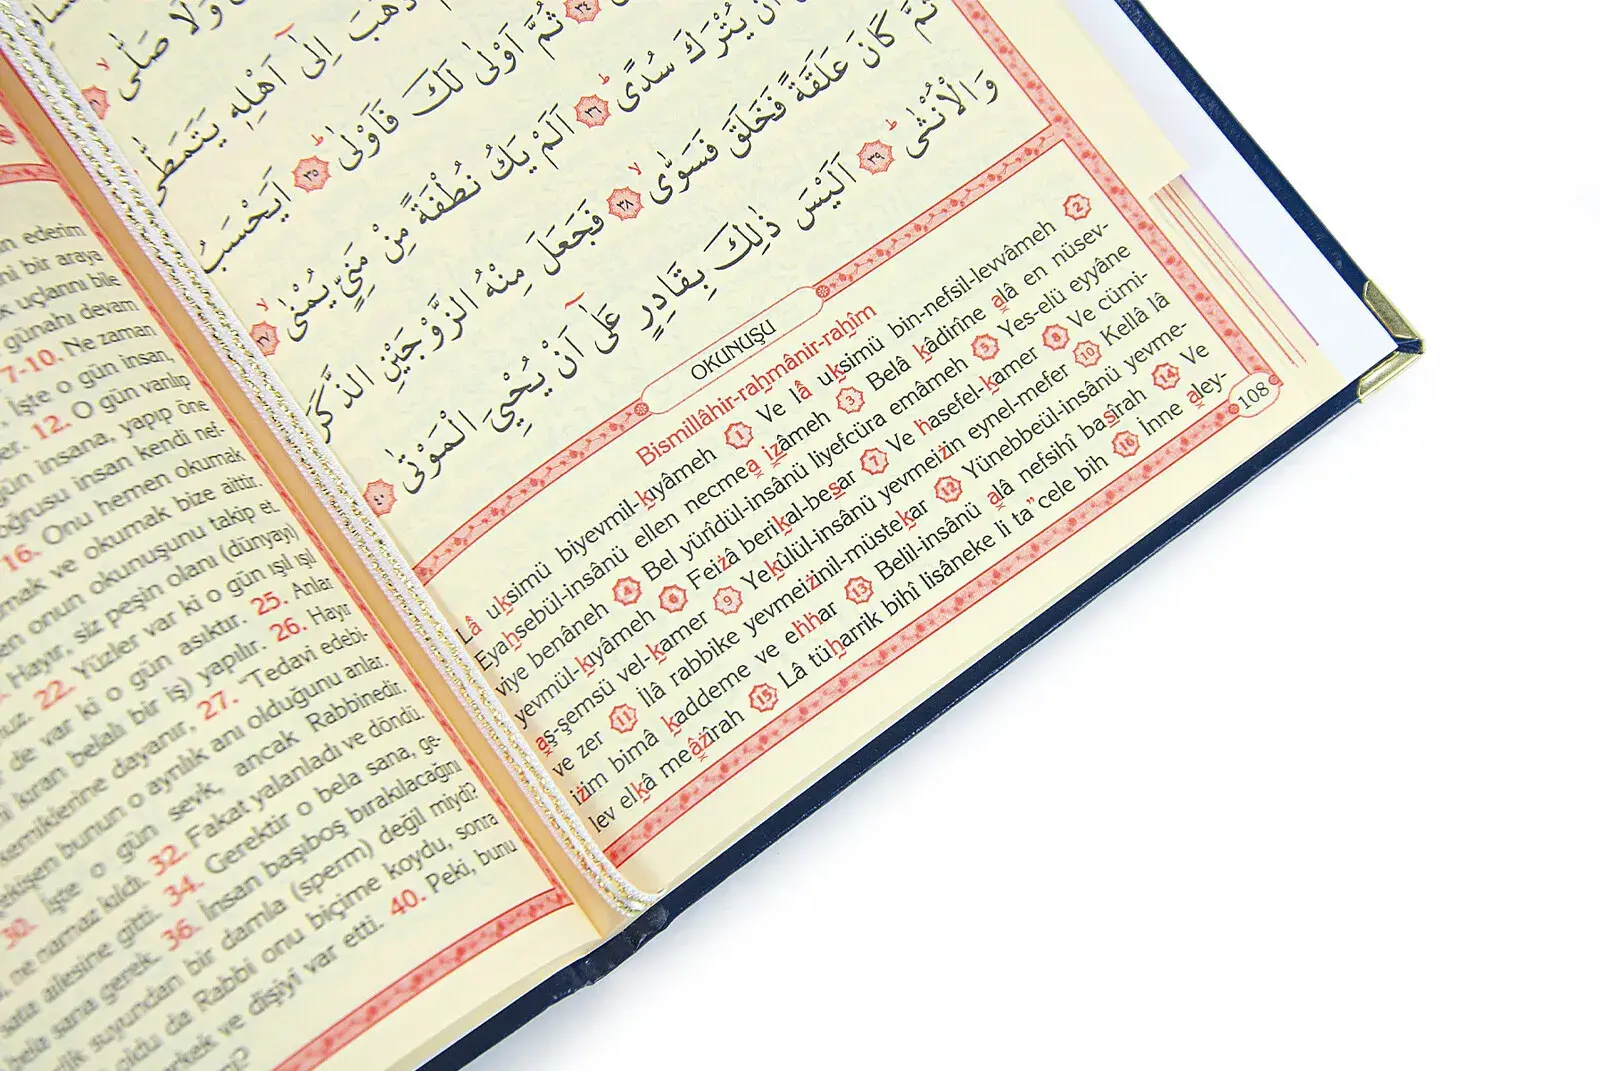 ن ولا صلى
ذهب الى اهله يتمطى
ثم اولى لك فاولى ٣٥ ايحسب
ان يترك سدى ٣٦ الم يك نطفة من منى يمنى
ثم كان علقة فخلق فسوى ٣٨ فجعل منه الزوجين الذكر
والانثى ٣٩ اليس ذلك بقادر على ان يحيى الموتى ٤٠
OKUNUŞU
Bismillâhir-rahmânir-rahîm
Lâ uksimü biyevmil-kıyâmeh 1 Ve lâ uksimü bin-nefsil-levvâmeh 2
Eyahsebül-insânü ellen necmea izâmeh 3 Belâ kâdirîne alâ en nüsev-
viye benâneh 4 Bel yürîdül-insânü liyefcüra emâmeh 5 Yes-elü eyyâne
yevmül-kıyâmeh 6 Feizâ berikal-besar 7 Ve hasefel-kamer 8 Ve cümi-
aş-şemsü vel-kamer 9 Yekûlül-insânü yevmeizin eynel-mefer 10 Kellâ lâ
ve zer 11 İlâ rabbike yevmeizinil-müstekar 12 Yünebbeül-insânü yevme-
izim bimâ kaddeme ve ehhar 13 Belil-insânü alâ nefsihî basîrah 14 Ve
lev elkâ meâzîrah 15 Lâ tüharrik bihî lisâneke li ta"cele bih 16 İnne aley-
108
ederim
bir araya
uçlarını bile
günahı devam
7-10. Ne zaman
İşte o gün insan,
12. O gün varılıp
gün insana, yapıp öne
oğrusu insan kendi nef-
Onu hemen okumak
16. mak ve okumak bize aittir.
onun okunuşunu takip et.
Hayır, siz peşin olanı (dünyayı)
22. Yüzler var ki o gün ışıl ışıl
de var ki o gün asıktır. 25. Anlar
kıran belalı bir iş) yapılır. 26. Hayır
kemiklerine dayanır, 27. "Tedavi edebi-
bunun o ayrılık anı olduğunu anlar.
30. İşte o gün sevk, ancak Rabbinedir.
ne namaz kıldı. 32. Fakat yalanladı ve döndü.
ailesine gitti. 34. Gerektir o bela sana, ge-
bela sana gerek. 36. İnsan başıboş bırakılacağını
suyundan bir damla (sperm) değil miydi?
oldu da Rabbi onu biçime koydu, sonra
erkek ve dişiyi var etti. 40. Peki, bunu